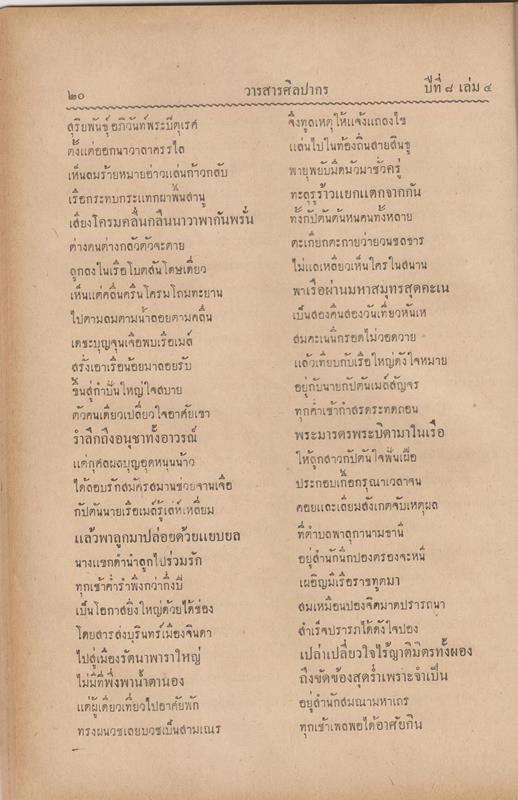 ๒๐ วารสารศิลปากร ปีที่ ๘ เล่ม ๔
สุริยพันธุ์อภิวันท์พระบิตุเรศ จึงทูลเหตุให้แจ้งแถลงไข
ตั้งแต่ออกนาวาลาครรไล แล่นไปในท้องถิ่นสายสินธุ
เห็นลมร้ายหมายอ่าวแล่นก้าวกลับ พายุพยับมืดมัวมาชั่วครู่
เรือกระทบกระแทกผาพื้นสานู ทะลุรูร้าวแยกแตกจากกัน
เสียงโครมคลื่นกลืนนาวาพากันพรั่น ทั้งกัปตันต้นหนคนทั้งหลาย
ต่างคนต่างกลัวตัวจะตาย ตะเกียกตะกายว่ายวนชลธาร
ลูกลงในเรือโบตสันโดษเดี่ยว ไม่แลเหลียวเห็นใครในสนาน
เห็นแต่คลื่นครืนโครมโถมทะยาน พาเรือผ่านมหาสมุทรสุดคะเน
ไปตามลมตามน้ำลอยตามคลื่น เป็นสองคืนสองวันเที่ยวหันเห
เดชะบุญจุนเจือพบเรือเมล์ สมคะเนนึกรอดไม่วอดวาย
สรั่งเอาเรือน้อยมาลอยรับ แล้วเทียบกับเรือใหญ่ดังใจหมาย
ขึ้นสู่กำปั่นใหญ่ใจสบาย อยู่กับนายกปตันเมล์สัญจร
ตัวคนเดียวเปลี่ยวใจอาศัยเขา ทุกค่ำเช้ากำสรดระทดถอน
รำลึกถึงอนุชาทั้งอาวรณ์ พระมารดรพระบิดามาในเรือ
แต่กุศลผลบุญอุดหนุนน้าว ให้ลูกสาวกปตันใจฟั่นเฝือ
ได้ลอบรักสมัครสมานช่วยจานเจือ ประกอบเกื้อกรุณาเวลาจน
กัปตันนายเรือเมล์รู้เล่ห์เหลี่ยม คอยและเลียมสังเกตจับเหตุผล
แล้วพาลูกมาปล่อยด้วยแยบยล ที่ตำบลพาลุกานามธานี
นางแขกดำนำลูกไปร่วมรัก อยู่สำนักนึกปองตรองจะหนี
ทุกเช้าค่ำรำพึงกว่ากึ่งปี เผอิญมีเรือราชทูตมา
เป็นโอกาสยิ่งใหญ่ด้วยได้ช่อง สมเหมือนปองจิตมาดปรารถนา
โดยสารส่งบุรินทร์เมืองจินดา สำเร็จปรารภได้ดังใจปอง
ไปสู่เมืองรัตนาพาราใหญ่ เปล่าเปลี่ยวใจไร้ญาติมิตรทั้งผอง
ไม่มีที่พึ่งพาน้ำตานอง ถึงขัดข้องสุดร่ำเพราะจำเป็น
แต่ผู้เดียวเที่ยวไปอาศัยพัก อยู่สำนักสมณามหาเถร
ทรงผนวชเลยบวชเป็นสามเณร ทุกเช้าเพลพอได้อาศัยกิน